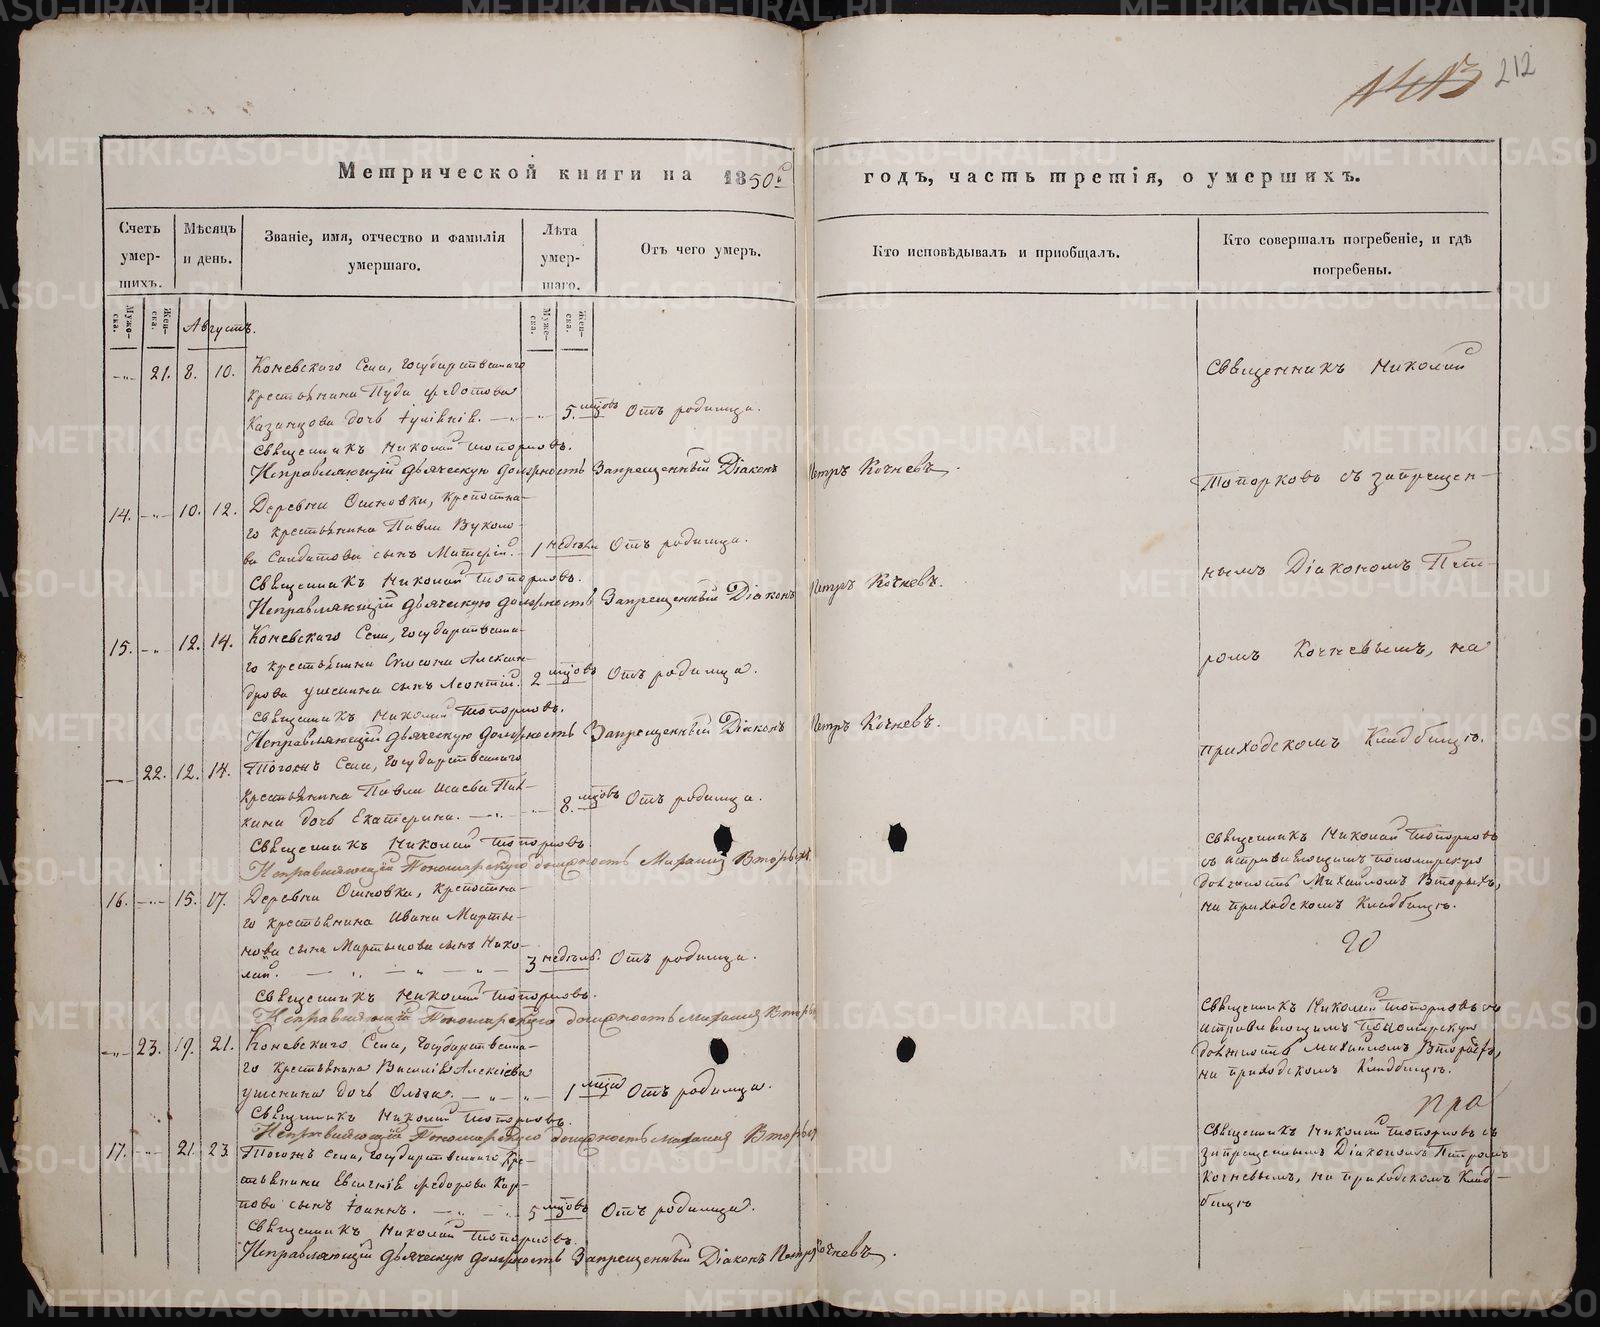 212
Метрической книги на 1850й годъ, часть третія, о умершихъ.
Счетъ умер-
шихъ.
Мѣсяцъ
и день.
Званіе, имя, отчество и фамилія
умершаго.
Лѣта
умер-
шаго.
Отъ чего умеръ.
Кто исповѣдывалъ и пріобщалъ.
Кто совершалъ погребеніе, и гдѣ
погребены.
Мужс-
ска.
Жен-
ска.
Муже-
ска.
Жен-
ска.
Августъ.
21. 8. 10. Коневскаго Села, Государственнаго
крестьянина Пуда Федотова
Казанцова дочь 5. мцовъ Отъ родимца.
Священникъ Николай Топорковъ.
Исправляющій дьяческую должность Запрещенный Діаконъ Петръ Кочневъ.
14. 10. 12. Деревни Осиновки, крепостна-
го крестьянина Павла Вуколо-
ва Солдатова сынъ 1 недѣли Отъ родимца.
Священникъ Николай Топорковъ.
Исправляющій дьяческую должность Запрещенный Діаконъ Петръ Кочневъ.
15. 12. 14. Коневскаго Села, Государственна-
го крестьянина Симеона Алексан-
дрова Ушенина сынъ Леонтій. 2 мцовъ Отъ родимца.
Священникъ Николай Топорковъ.
Исправляющій дьяческую должность Запрещенный Діаконъ Петръ Кочневъ.
22. 12. 14. Тогожъ Села, Государственнаго
крестьянина Павла Исаева
дочь Екатерина. 8. мцовъ Отъ родимца.
Священникъ Николай Топорковъ.
Исправляющій Пономарскую должность Михаилъ Вторыхъ
16. 15. 17. Деревни Осиновки, крепостна-
го крестьянина Ивана Марты-
нова сына Мартынова сынъ Нико-
лай. 3 недѣль. Отъ родимца.
Священникъ Николай Топорковъ.
Исправляющій Пономарскую должность Михаилъ Вторы
23. 19. 21. Коневскаго Села, Государственна-
го крестьянина Василія Алексіева
Ушенина дочь Ольга. 1 мца Отъ родимца.
Священникъ Николай Топорковъ.
Исправляющій Пономарскую должность Михаилъ Вторых
17. 21. 23. Тогожъ Села, Государственнаго Кре-
стьянина Евгенія Федорова Кар-
пова сынъ Іоаннъ. 5 мцовъ Отъ родимца.
Священникъ Николай Топорковъ.
Исправляющій дьяческую должность Запрещенный Діаконъ Петръ Кочневъ.
Священникъ Николай
Топорковъ съ запрещен-
нымъ Діакономъ Пет-
ромъ Кочневымъ, на
приходскомъ Кладбищѣ.
Священникъ Николай Топорковъ
съ исправляющимъ пономарскую
должность Михаиломъ Вторыхъ,
на приходскомъ Кладбищѣ.
Священникъ Николай Топорковъ съ
исправляющимъ Пономарскую
должность Михаиломъ Вторыхъ,
на приходскомъ Кладбищѣ.
Священникъ Николай Топорковъ съ
запрещеннымъ Діакономъ Петромъ
Кочневымъ, на приходскомъ Клад-
бищѣ
METRIKI.GASO-URAL.RU